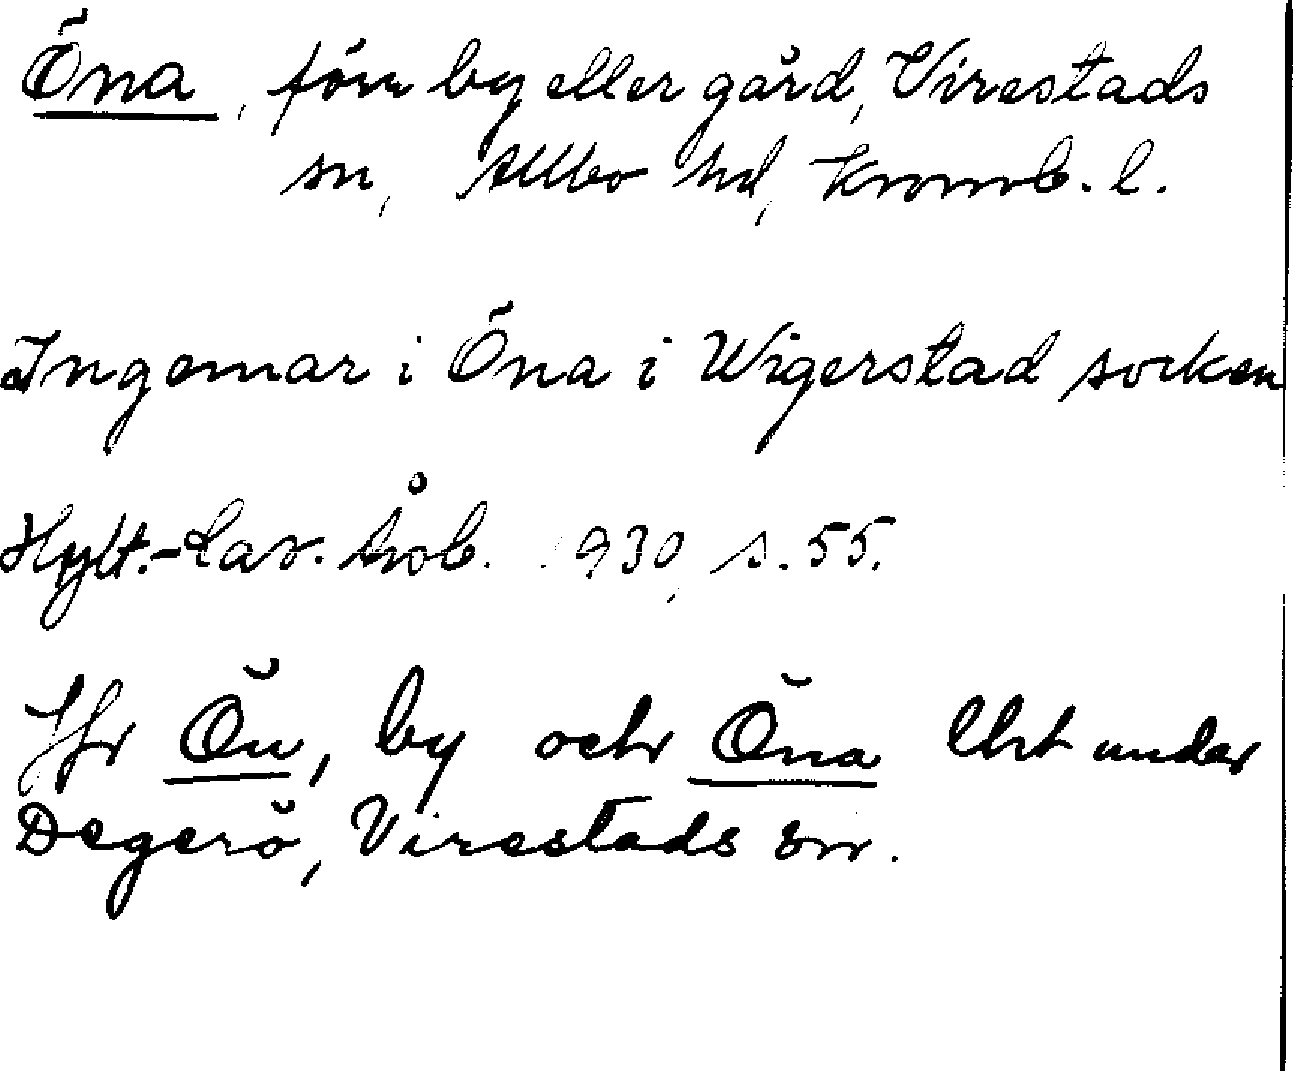 Öna, förr by eller gård, Virestads
sn, Allbo hd, Kronob. l.
Ingemar i Öna i Wigerstad socken
Hylt.-Cav. Årsb. 1930, s. 55.
Jfr Ön, by och Öna lht under
Degerö, Virestads sn.